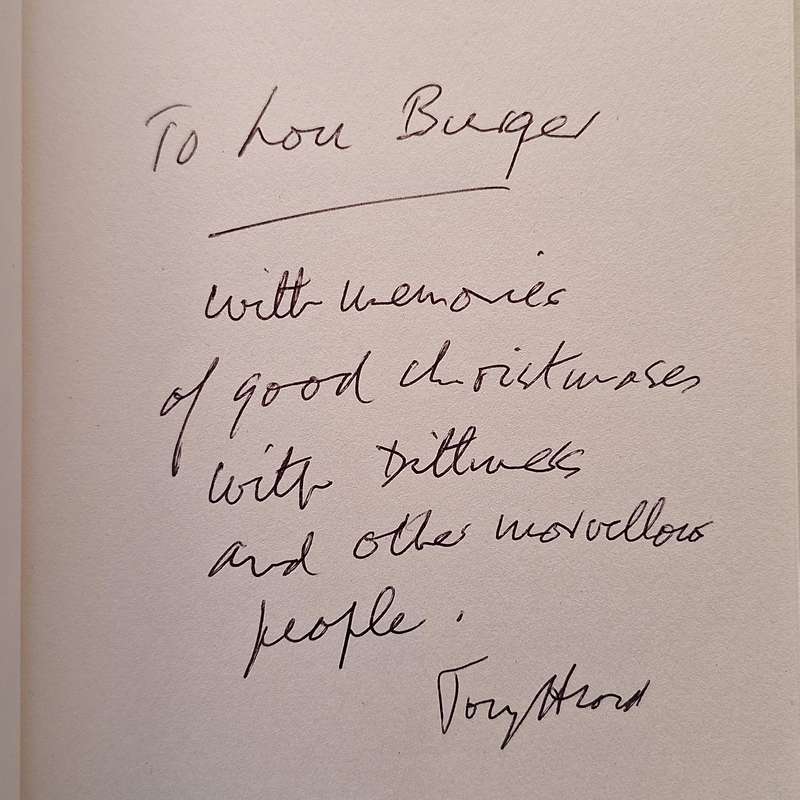 To Lou Burger
with memories
of good christmases
with Dittmers
and other marvellous
people.
Tony Hoare